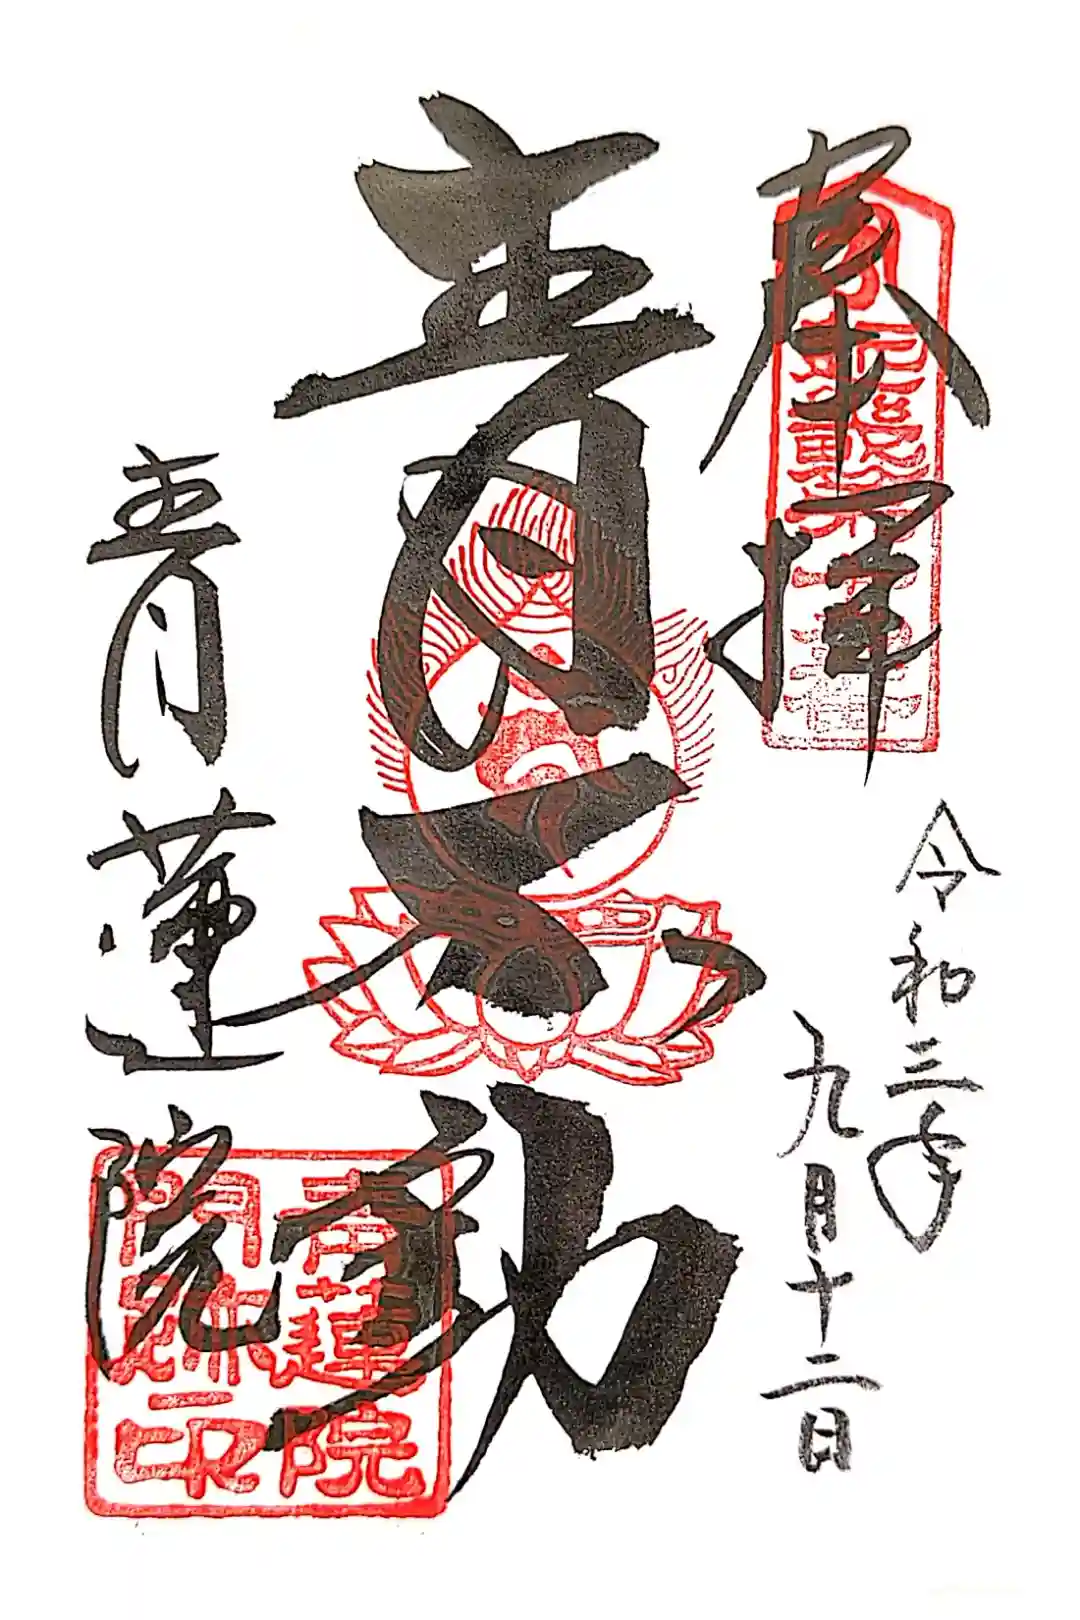 奉拝
令和三年
九月十二日
青不動
青蓮院
青蓮院
門跡印